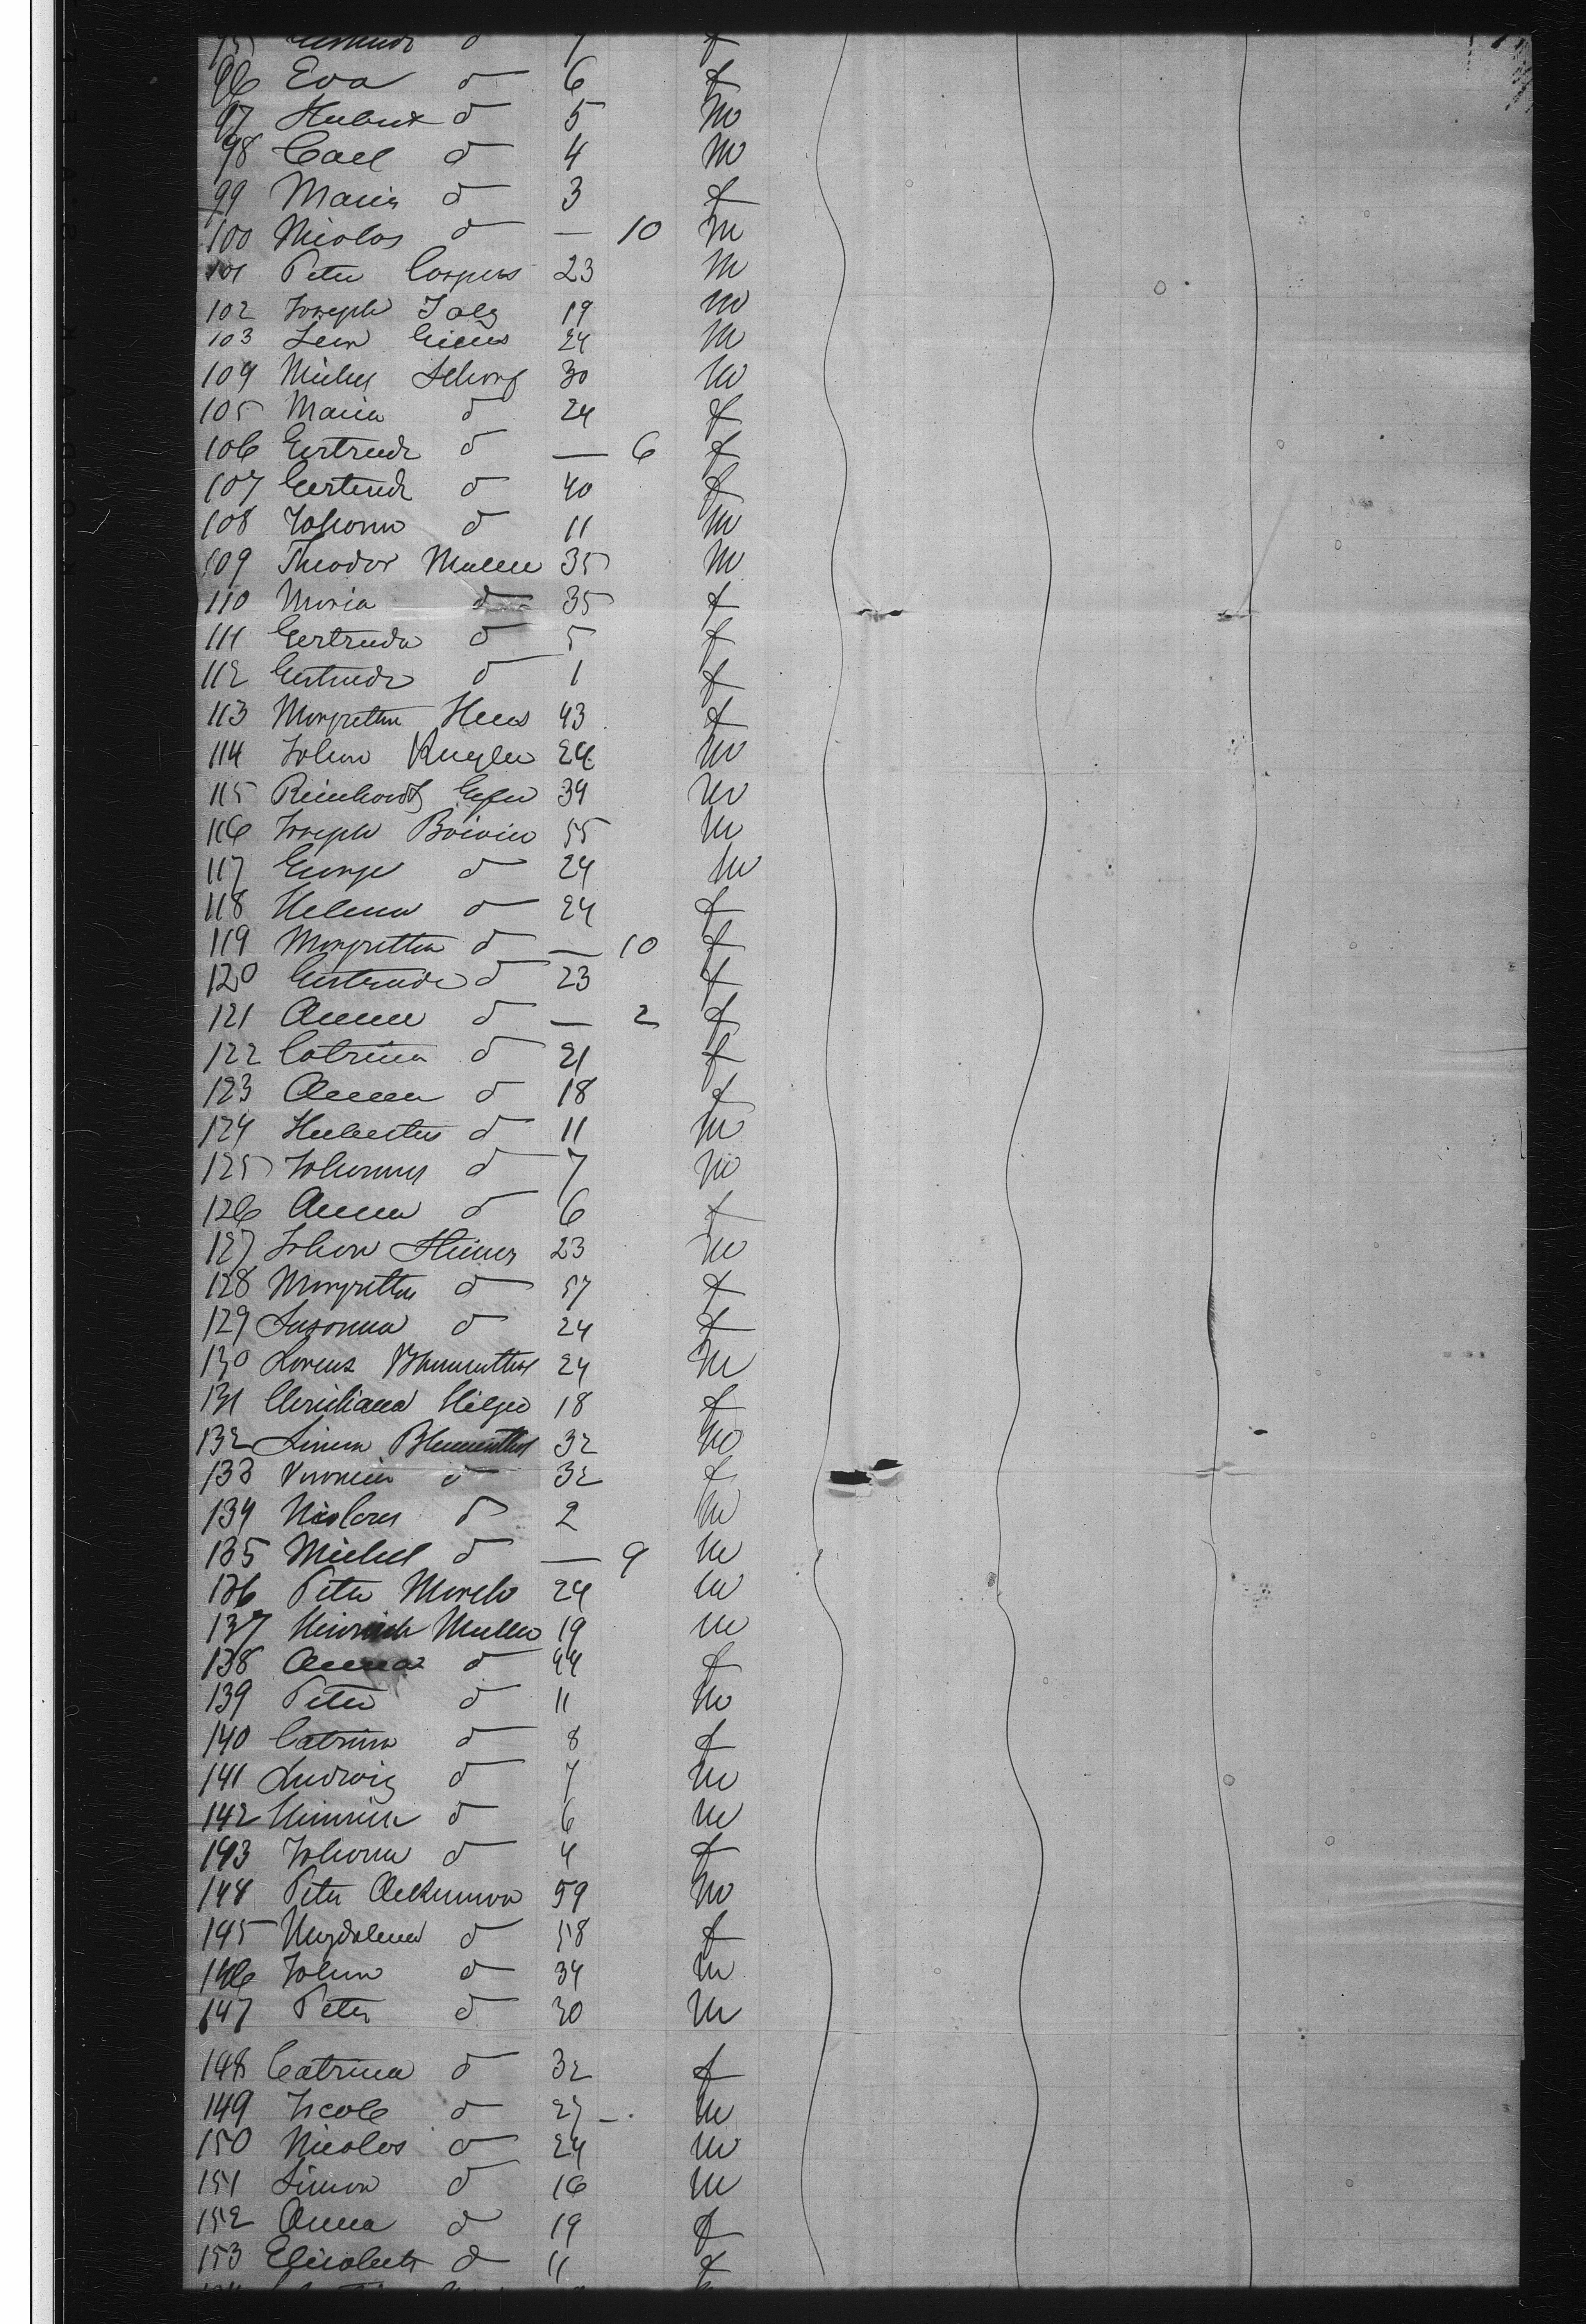 95 Gertrude do 7 f
96 Eva do 6 f
97 Hubert do 5 m
98 Carl do 4 m
99 Maria do 3 f
100 Nicolas do — 10 m
101 Peter Caspers 23 m
102 Joseph 19 m
103 24 m
104 Michel Schorf 30 m
105 Maria do 24 f
106 Gertrude do — 6 f
107 Gertrude do 40 f
108 Johann do 11 m
109 Theodor Muller 35 m
110 Maria do 35 f
111 Gertruda do 5 f
112 Gertrude do 1 f
113 Margretha Hees 43 f
114 Johan Kugler 24 m
115 Reinhardt 34 m
116 Joseph Boivin 55 m
117 George do 24 m
118 Helena do 24 f
119 Margretha do — 10 f
120 Gertrude do 23 f
121 Anna do — 2 f
122 Catrina do 21 f
123 Anna do 18 f
124 Hubertus do 11 m
125 Johannes do 7 m
126 Anna do 6 f
127 Johan 23 m
128 Margretha do 57 f
129 Susanna do 24 f
130 Lorenz Blumenthal 24 m
131 Christiana Hilger 18 f
132 Simon Blumenthal 32 m
133 Veronica do 32 f
134 Nicolaus do 2 m
135 Michel do — 9 m
136 Peter 24 m
137 Heinrich Muller 19 m
138 Anna do 44 f
139 Peter do 11 m
140 Catrina do 8 f
141 Ludwig do 7 m
142 Heinrich do 6 m
143 Johanna do 4 f
144 Peter Ackerman 59 m
145 Magdalena do 58 f
146 Johan do 34 m
147 Peter do 30 m
148 Catrina do 32 f
149 Jacob do 27 — m
150 Nicolas do 24 m
151 Simon do 16 m
152 Anna do 19 f
153 Elisabeth do 11 f